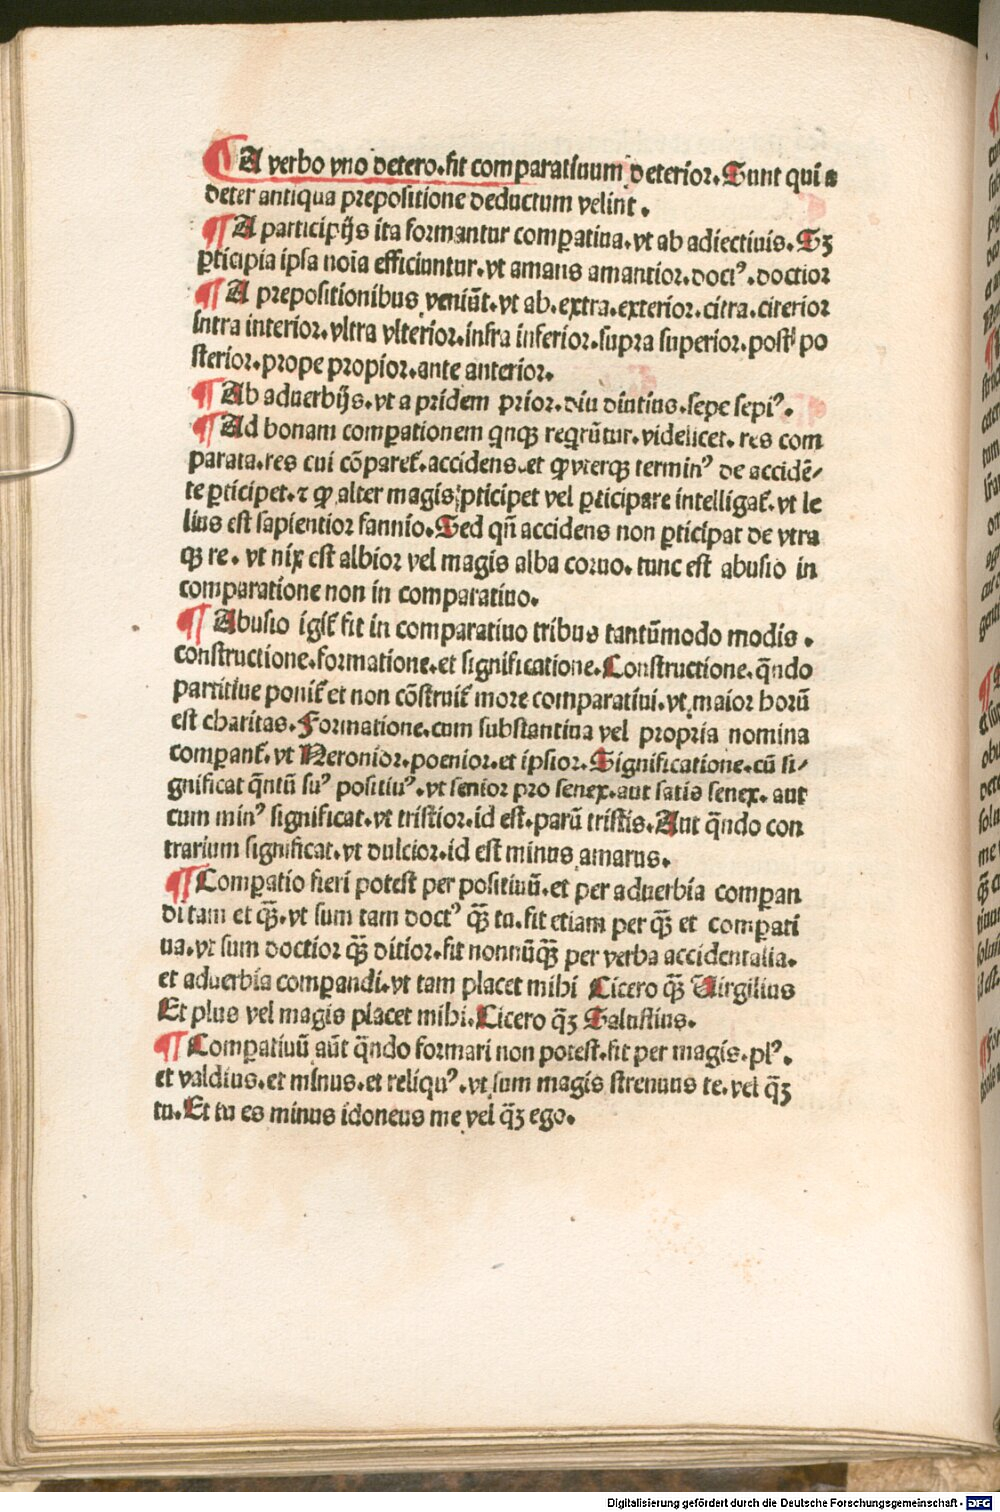 ¶ A verbo vno detero. fit comparatiuum deterior. Sunt qui a
deter antiqua prepositione deductum velint.
¶ A participijs ita formantur comꝑatiua. vt ab adiectiuis. Sꝫ
ꝑticipia ipsa noīa efficiuntur. vt amans amantior. docꝰ. doctior
¶ A prepositionibus veniūt. vt ab. extra. exterior. citra. citerior
intra interior. vltra vlterior. infra inferior. supra superior. post po
sterior. prope propior. ante anterior.
¶ Ab aduerbijs. vt a pridem prior. diu diutius. sepe sepiꝰ.
¶ Ad bonam comꝑationem qnqꝫ reqrūtur. videlicet. res com
parata. res cui cōparet̄. accidens. et ꝙ vterqꝫ terminꝰ de accidē-
te ꝑticipet. ⁊ ꝙ alter magis ꝑticipet vel ꝑticipare intelligat̄. vt le
lius est sapientior fannio. Sed qn̄ accidens non ꝑticipat de vtra
qꝫ re. vt nix est albior vel magis alba coruo. tunc est abusio in
comparatione non in comparatiuo.
¶ Abusio igit̄ fit in comparatiuo tribus tantūmodo modis.
constructione. formatione. et significatione. Constructione. qn̄do
partitiue ponit̄ et non cōstruit̄ more comparatiui. vt maior horū
est charitas. Formatione. cum substantiua vel propria nomina
comparant̄. vt Neronior. poenior. et ipsior. Significatione. cū si-
gnificat qn̄tū suꝰ positiuꝰ. vt senior pro senex. aut satis senex. aut
cum minꝰ significat. vt tristior. id est. parū tristis. Aut qn̄do con
trarium significat. vt dulcior. id est minus amarus.
¶ Comꝑatio fieri potest per positiuū. et per aduerbia comparan
di tam et q̄ꝫ. vt sum tam doctꝰ q̄ꝫ tu. fit etiam per q̄ꝫ et comꝑati
ua. vt sum doctior q̄ꝫ ditior. fit nonnūq̄ꝫ per verba accidentalia.
et aduerbia comparandi. vt tam placet mihi Cicero q̄ꝫ Virgilius
Et plus vel magis placet mihi. Cicero q̄ꝫ Salustius.
¶ Comꝑatiuū aūt qn̄do formari non potest. fit per magis. plꝰ.
et valdius. et minus. et reliquꝰ. vt sum magis strenuus te. vel q̄ꝫ
tu. Et tu es minus idoneus me vel q̄ꝫ ego.
Digitalisierung gefördert durch die Deutsche Forschungsgemeinschaft - DFG